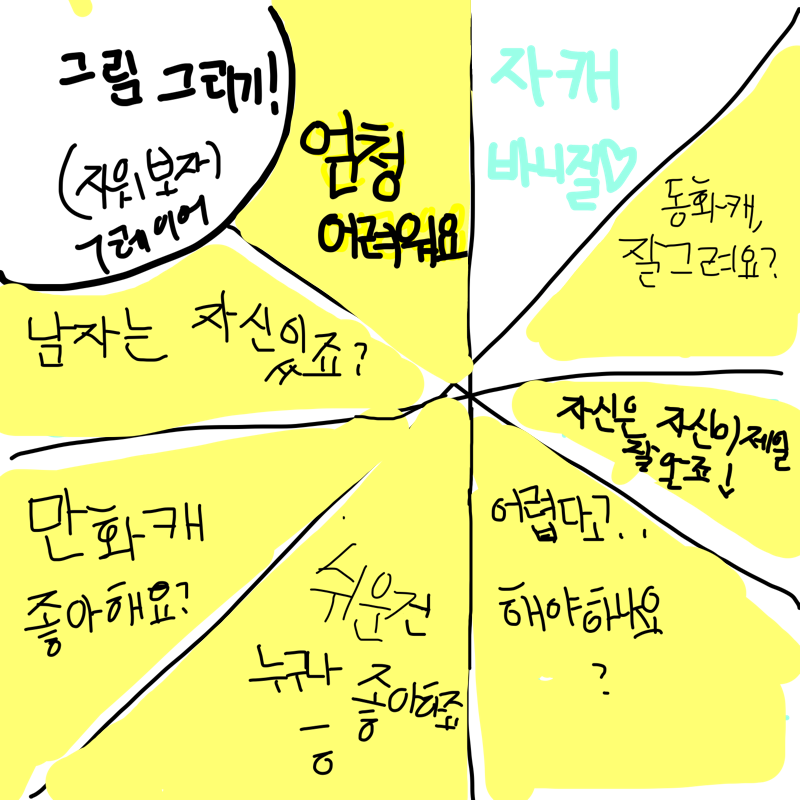 그림 그리기!
엄청
어려워요
자캐
바니질♡
동화캐,
잘그려요?
남자는 자신있죠?
자신은 자신이 제일
잘 오죠!
만화캐
좋아해요?
쉬운건
누구나 좋아하죠
응
어렵다고?..
해야하나요
?